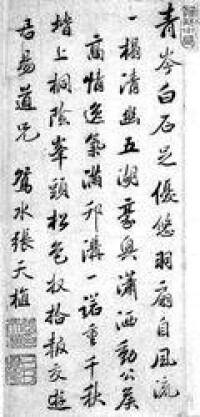 青岑白石足優悠羽扇自風流
一榻清幽五湖豪興瀟洒動公侯
高情逸氣滿邗溝一諾重千秋
堦上桐陰峯頭松色收拾報交遊
君易道兄 鴛水張天植